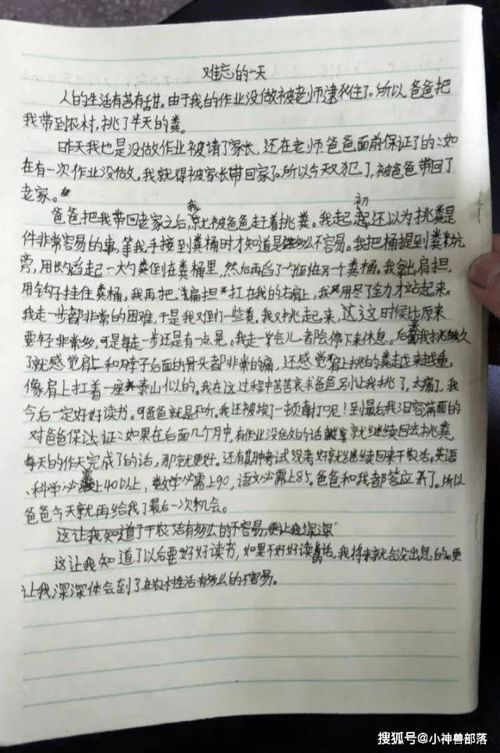 难忘的一天
人的生活有苦有甜。由于我的作业没做被老师逮住了。所以爸爸把
我带到农村,挑了半天的粪。
昨天我也是没做作业被请了家长,还在老师爸爸面前保证了的:如
在有一次作业没做,我就得被家长带回家了。所以今天又犯了,被爸爸带回了
老家。
爸爸把我带回老家之后,我就被爸爸赶着挑粪。我起初还以为挑粪是
件非常容易的事,等我手接到粪桶时才知道是多么不容易。我把桶提到粪坑
旁,用舀起一大勺粪倒在粪桶里,然后再舀了一勺倒在另一个粪桶。我拿出肩担,
用钩子挂住粪桶。我再把扁担扛在我的右肩上,我用尽了全力才站起来。
我走一步都非常的困难,于是我又倒了一些粪。我又挑起来,这时候比原来
要轻非常多,可是每走一步还是有一点晃。我走一会儿者险停下来休息。后来我挑久
了就感觉肩上和脖子后面的骨头都非常的痛,还感觉肩上挑的粪走来越重,
像肩上扛着一座泰山似的。我在这过程中苦苦哀求爸爸别让我挑了,太痛了,我
今后一定好好读书。可爸爸就是不听,我还被挨了一顿毒打呢!到最后我泪容满面的
对爸爸保证:如果在后面几个月中,有作业没做好的话就继续回去挑粪,
每天的作天完成了的话,那就更好。还有期中考试没考好就继续回来干农活。英语
、科学必需上40以上,数学必需上90,语文必需上85。爸爸和我都答应了。所以
爸爸今天就再给我了最后一次机会。
这让我知道了干农活有多么的不容易,更让我深深
这让我知道了以后要好好读书,如果不好好读书的话,我将来就会没出息的。更
让我深深体会到了在农村生活有多么的不容易。
搜狐号@小神兽部落